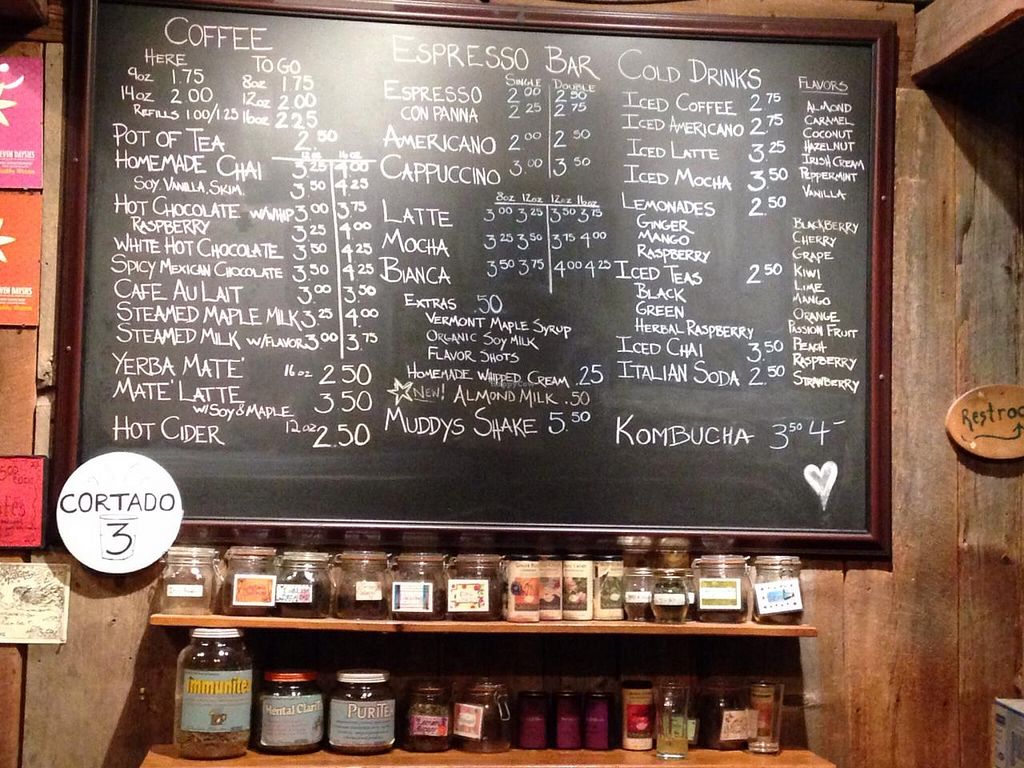 COFFEE
HERE TO GO
9oz 1.75 8oz 1.75
14oz 2.00 12oz 2.00
REFILLS 1.00/1.25 16oz 2.25
POT OF TEA 2.50
12oz 16oz
HOMEMADE CHAI 3.25 4.00
SOY, VANILLA, SKIM. 3.50 4.25
HOT CHOCOLATE W/WHIP 3.00 3.75
RASPBERRY 3.25 4.00
WHITE HOT CHOCOLATE 3.50 4.25
SPICY MEXICAN CHOCOLATE 3.50 4.25
CAFE AU LAIT 3.00 3.50
STEAMED MAPLE MILK 3.25 4.00
STEAMED MILK W/FLAVOR 3.00 3.75
YERBA MATE' 16oz 2.50
MATE' LATTE 3.50
W/SOY & MAPLE
HOT CIDER 12oz 2.50
ESPRESSO BAR
SINGLE DOUBLE
ESPRESSO 2.00 2.50
CON PANNA 2.25 2.75
AMERICANO 2.00 2.50
CAPPUCCINO 3.00 3.50
8oz 12oz 12oz 16oz
LATTE 3.00 3.25 3.50 3.75
MOCHA 3.25 3.50 3.75 4.00
BIANCA 3.50 3.75 4.00 4.25
EXTRAS .50
VERMONT MAPLE SYRUP
ORGANIC SOY MILK
FLAVOR SHOTS
HOMEMADE WHIPPED CREAM .25
NEW! ALMOND MILK .50
MUDDYS SHAKE 5.50
COLD DRINKS
ICED COFFEE 2.75
ICED AMERICANO 2.75
ICED LATTE 3.25
ICED MOCHA 3.50
LEMONADES 2.50
GINGER
MANGO
RASPBERRY
ICED TEAS 2.50
BLACK
GREEN
HERBAL RASPBERRY
ICED CHAI 3.50
ITALIAN SODA 2.50
KOMBUCHA 3.50 4-
FLAVORS
ALMOND
CARAMEL
COCONUT
HAZELNUT
IRISH CREAM
PEPPERMINT
VANILLA
BLACKBERRY
CHERRY
GRAPE
KIWI
LIME
MANGO
ORANGE
PASSION FRUIT
PEACH
RASPBERRY
STRAWBERRY
CORTADO
3
Restroo
immunite
Mental Clari
PURITE